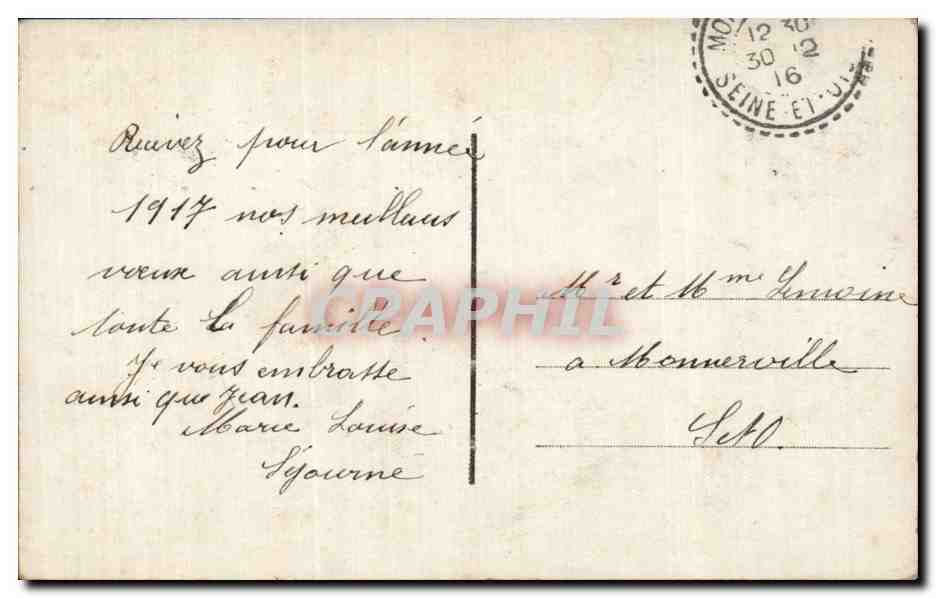 MO
12 30
30 12
16
SEINE-ET-OI
Recevez pour l'année
1917 nos meilleurs
vœux ainsi que
toute la famille
Je vous embrasse
ainsi que Jean.
Marie Louise
Séjourné
Mr et Mme Lemoine
a Monnerville
S et O.
CPAPHIL